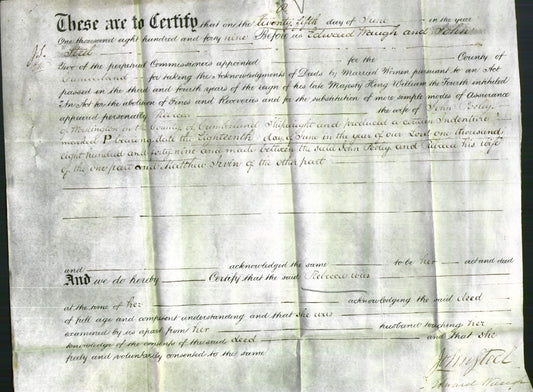 These are to Certify that on the twenty fifth day of June in the year
One thousand eight hundred and forty nine Before us Edward Waugh and John
J.S. Steel
Two of the perpetual Commissioners appointed for the County of
Cumberland for taking the Acknowledgments of Deeds by Married Women pursuant to an Act
passed in the third and fourth years of the reign of his late Majesty King William the Fourth intituled
An Act for the abolition of Fines and Recoveries and for the substitution of more simple modes of Assurance
appeared personally Rebecca the wife of John
of Workington in the County of Cumberland Shipwright and produced a certain Indenture
marked P bearing date the Eighteenth day of June in the year of our Lord one thousand
eight hundred and forty nine and made between the said John and Rebecca his wife
of the one part and Matthew Irvin of the other part
and acknowledged the same to be her act and deed
And we do hereby Certify that the said Rebecca was
at the time of her acknowledging the said deed
of full age and competent understanding and that she was
examined by us apart from her husband touching her
knowledge of the contents of the said deed and that she
freely and voluntarily consented to the same
John Steel
Edward Waugh